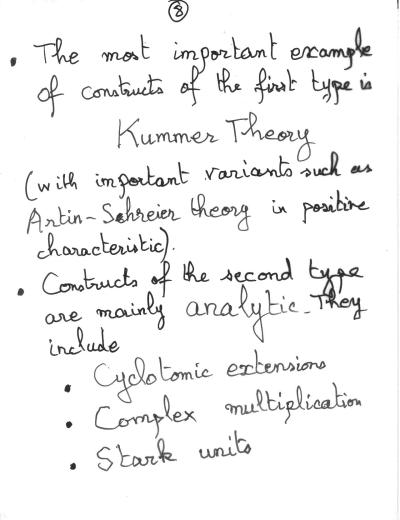 ⑧
• The most important example
of constructs of the first type is
Kummer Theory
(with important variants such as
Artin-Schreier theory in positive
characteristic).
• Constructs of the second type
are mainly analytic. They
include
• Cyclotomic extensions
• Complex multiplication
• Stark units